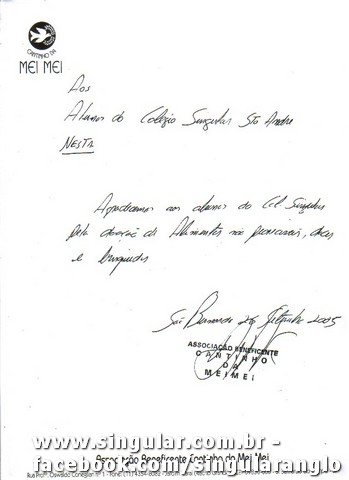 CANTINHO DA
MEI MEI
Aos
Alunos do Colégio Singular Sto André
NESTA
Agradecemos aos alunos do Col. Singular
pela doação de Alimentos não perecíveis, doces
e brinquedos
São Bernardo 26 Setembro 2005
ASSOCIAÇÃO BENEFICENTE
CANTINHO
DA
MEIMEI
www.singular.com.br -
Associação Beneficente Cantinho da Mei Mei
facebook.com/singularanglo